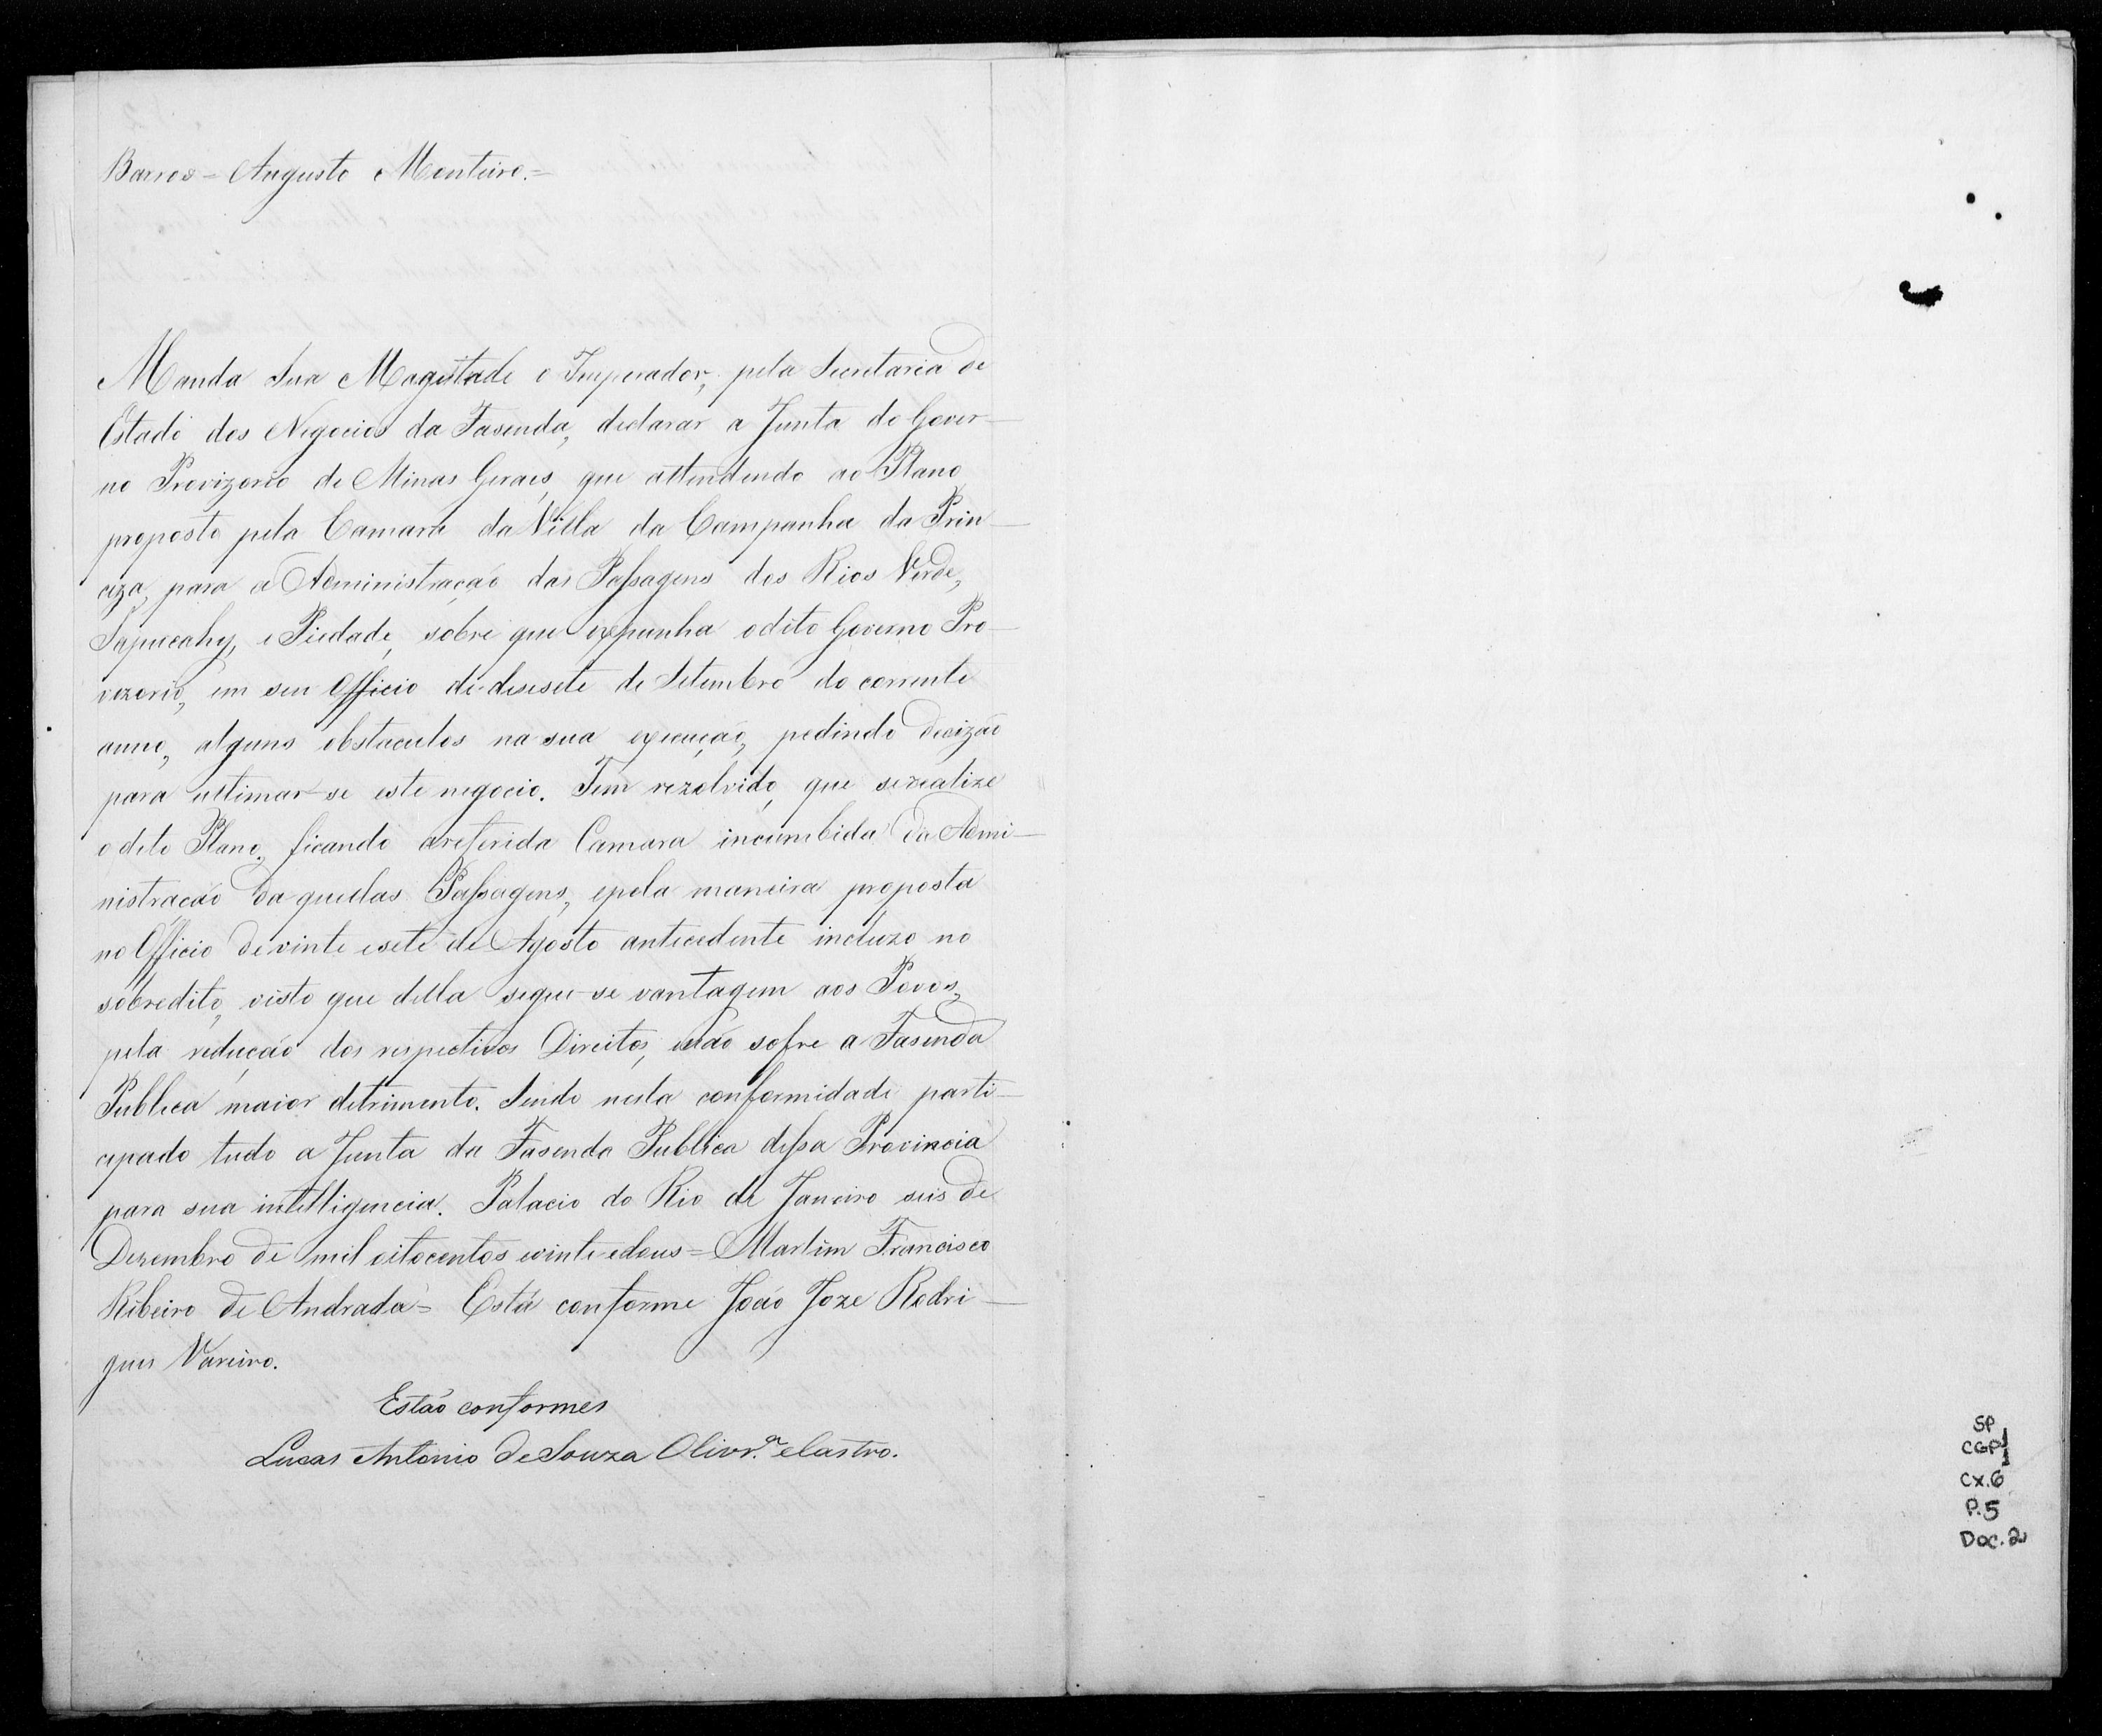 Barros = Augusto Monteiro. =
Manda Sua Magestade o Imperador, pela Secretaria de
Estado dos Negocios da Fasenda, declarar a Junta do Gover-
no Provizorio de Minas Geraes, que attendendo ao Plano
proposto pela Camara da Villa da Campanha da Prin-
ciza, para a Administração das Passagens dos Rios Verde,
Sapucahy, e Piedade, sobre que expunha o dito Governo Pro-
vizorio, em seu Officio de desesete de Setembro do corrente
anno, alguns obstaculos na sua execução, pedindo decizão
para ultimar-se este negocio. Tem rezolvido, que se realize
o dito Plano, ficando a referida Camara incumbida da Admi-
nistração da quellas Passagens, e pela maneira proposta
no Officio de vinte e sete de Agosto antecedente incluzo no
sobredito, visto que della segue-se vantagem aos Povos,
pela redução dos respectivos Direitos, e não sofre a Fasenda
Publica maior detrimento. Sendo nesta conformidade parti-
cipado tudo a Junta da Fasenda Publica dessa Provincia
para sua intelligencia. Palacio do Rio de Janeiro seis de
Dezembro de mil oitocentos e vinte e dous = Martim Francisco
Ribeiro de Andrada = Está conforme João Joze Rodri-
gues Vareiro.
Estão conformes
Lucas Antonio de Souza Olivr.ª e Castro.
SP
CGP1
Cx.6
P.5
Doc. 2